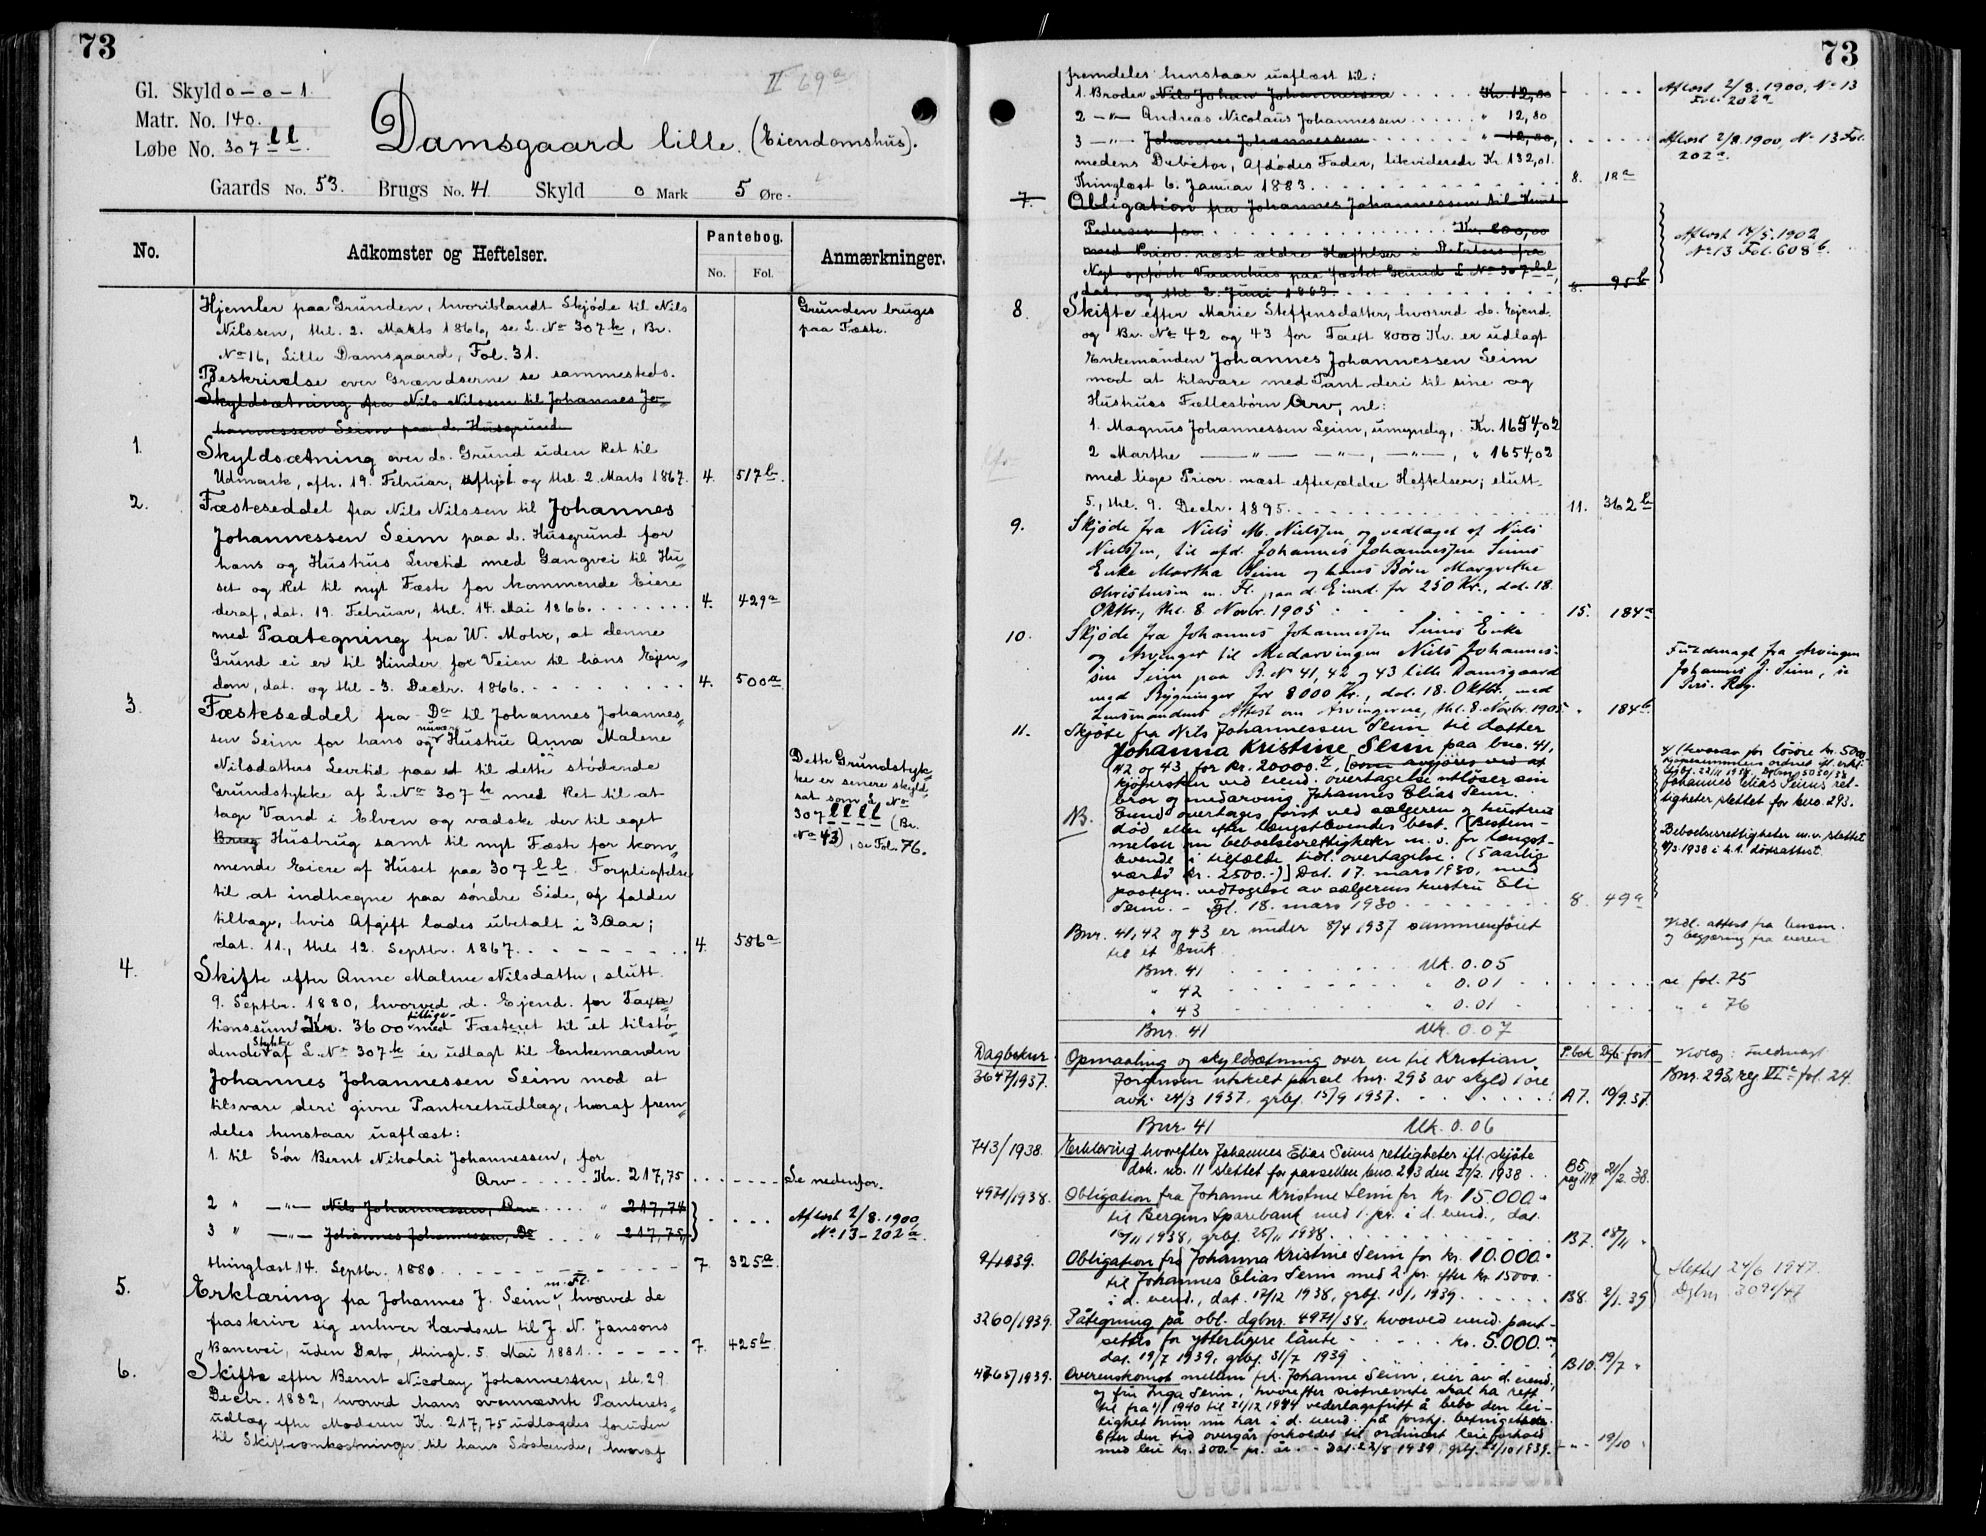 73
II 69a
Gl. Skyld 0 – 0 – 1.
Matr. No. 140.
Løbe No. 307 ll.
Damsgaard lille. (Eiendomshus).
Gaards No. 53. Brugs No. 41 Skyld 0 Mark 5 Øre.
No. Adkomster og Heftelser. Pantebog. Anmærkninger.
No. Fol.
Hjemler paa Grunden, hvoriblandt Skjøde til Nils Grunden bruges
Nilssen, thl. 2. Marts 1866, se L. No 307 k, Br. paa Fæste.
No 16, Lille Damsgaard, Fol. 31.
Beskrivelse over Grændserne se sammesteds.
Skyldsætning fra Nils Nilssen til Johannes Jo-
hannessen Seim paa d. Husgrund
1. Skyldsætning over d. Grund uden Ret til
Udmark, afh. 19. Februar, afhjst og thl. 2. Marts 1867. 4. 517b.
2. Fæsteseddel fra Nils Nilssen til Johannes
Johannessen Seim paa d. Husgrund for
hans og Hustrus Levetid med Gangvei til Hu-
set og Ret til nyt Fæste for kommende Eiere
deraf, dat. 19. Februar, thl. 14. Mai 1866. 4. 429a
med Paategning fra W. Mohr, at denne
Grund ei er til Hinder for Veien til hans Ejen-
dom, dat. og thl. 3. Decbr. 1866. 4. 500a
3. Fæsteseddel fra Do til Johannes Johannes-
sen Seim for hans og nuvæ. Hustrue Anna Malene
Nilsdatters Levetid paa et til dette stødende
Grundstykke af L. No 307 k med Ret til at
tage Vand i Elven og vadske der til eget
Brug Husbrug samt til nyt Fæste for kom-
mende Eiere af Huset paa 307 ll. Forpligtelse
til at indhegne paa søndre Side, og falder
tilbage, hvis Afgift lades ubetalt i 3 Aar;
dat. 11., thl. 12. Septbr. 1867. 4. 586a
Dette Grundstyk-
ke er senere skyld-
sat som L. No
307 llll (Br.
No 43), se Fol. 76.
4. Skifte efter Anne Malene Nilsdatter, slutt.
9. Septbr. 1880, hvorved d. Ejend. for Taxa-
tionssum Kr. 3600 tillige- med Fæsteret til et tilstø-
dende Stykke af L. No 307 k er udlagt til Enkemanden
Johannes Johannessen Seim mod at
tilsvare deri givne Panteretsudlæg, hvoraf frem-
deles henstaar uaflæst:
1. til Søn Bernt Nikolai Johannessen, for
Arv Kr. 217,75 Se nedenfor.
2 " —"— Nils Johannessen, Arv " 217,74
3 " —"— Johannes Johannessen, Do " 217,75
Aflæst 2/8.1900,
No 13 – 202a.
thinglæst 14. Septbr. 1880. 7. 325a
5. Erklæring fra Johannes J. Seim m. Fl., hvorved de
fraskrive sig enhver Hævdsret til J. N. Jansons
Banevei, uden Dato, thingl. 5. Mai 1881. 7. 425b
6. Skifte efter Bernt Nicolay Johannessen, sle. 29.
Decbr. 1882, hvorved hans ovennævnte Panterets-
udlæg efter Moderen Kr. 217,75 udlagdes foruden
til Skifteomkostninger til hans Søskende, hvoraf
73
fremdeles henstaar uaflæst til:
1. Broder Nils Johan Johannessen Kr. 12,80 Aflæst 2/8.1900, No 13
Fol. 202a
2 —"— Andreas Nicolaus Johannessen " 12,80
3 —"— Johannes Johannessen " 12,80, Aflæst 2/8.1900, No 13 Fol.
202a.
medens Debitor, Afdødes Fader, likviderede Kr. 132,01.
Thinglæst 6. Januar 1883. 8. 18a
7. Obligation fra Johannes Johannessen til Knut
Pedersen for Kr. 800,00
med Prior. næst ældre Hæftelser i
Nyt opført Vaanhus paa fæstet Grund L. No 307 ll,
dat. og thl. 2. Juni 1883. 8. 95b
Aflæst 14/5.1902
No 13 Fol. 608b.
8. Skifte efter Marie Steffensdatter, hvorved d. Ejend.
og Br. No 42 og 43 for Taxt 8000 Kr. er udlagt
Enkemanden Johannes Johannessen Seim
mod at tilsvare med Pant deri til sine og
Hustrues Fællesbørn Arv, nl:
1. Magnus Johannessen Seim, umyndig, Kr. 1654,02
2 Marthe —"— —"—, —"—, " 1654,02
med lige Prior. næst efter ældre Heftelser; slutt.
5., thl. 9. Decbr. 1895. 11. 362b
9. Skjøde fra Niels M. Nielssen, og vedtaget af Niels
Nielssen, til afd. Johannes Johannessen Seims
Enke Martha Seim og hans Børn Margrethe
Christensen m. Fl. paa d. Eiend. for 250 Kr., dat. 18.
Oktbr., thl. 8. Novbr. 1905 15. 184a
10. Skjøde fra Johannes Johannessen Seims Enke
og Arvinger til Medarvingen Niels Johannes-
sen Seim paa B. No 41, 42 og 43 lille Damsgaard
med Bygninger for 8000 Kr., dat. 18. Oktbr., med
Lensmandens Attest om Arvingerne, thl. 8. Novbr. 1905. " 184b
Fuldmagt fra Arvingen
Johannes J. Seim, se
Pers. Reg.
11. Skjøte fra Nils Johannessen Seim til datter
Johanna Kristine Seim paa bno. 41,
42 og 43 for kr. 20000.-, som avgjøres ved at
kjøpersken ved eiend. overtagelse utløser sin
bror og medarving Johannes Elias Seim.
NB. Eiend. overtages først ved sælgeren og hustrus
død eller efter længstlevendes best. (Bestem-
melser om beboelsesrettigheter m. v. for længst-
levende i tilfælde tidl. overtagelse. (5 aarlig
værdi kr. 2500.-)] Dat. 17. mars 1930, med
paategn. vedtagelse av sælgerens hustru Eli
Seim. – Tgl. 18. mars 1930 8. 49a
Johannes Elias Seims ret-
tigheter slettet for bno. 293.
Beboelsesrettigheter m.v. slettet
Bnr. 41, 42 og 43 er under 8/4 1937 sammenføiet
til et bruk.
Vedl. attest fra lensm.
og begjæring fra eieren
Bnr. 41 Mk. 0.05
" 42 " 0.01 se fol. 75
" 43 " 0.01 " " 76
Bnr. 41 Mk. 0.07
Dagboknr. P.bok Dgb. ført
3647/1937. Opmaaling og skyldsætning over en til Kristian
Jørgensen utskilt parsel bnr. 293 av skyld 1 øre
avh. 24/3 1937, grbf. 15/9 1937. A7. 10/9.37.
Vedlag: Fuldmagt
Bnr. 293, reg. VIIa fol. 24.
Bnr. 41 Mk. 0.06
743/1938. Erklæring hvorefter Johannes Elias Seims rettigheter ifl. skjøte
dok. no. 11 slettet for parsellen bno. 293 den 27/2. 1938 B5 pag 119 21/2 38.
4971/1938. Obligation fra Johanne Kristine Seim for kr. 15.000.-
til Bergens Sparebank med 1. pr. i d. eiend., dat.
16/11 1938, grbf. 25/11 1938. B7. 18/11 "
9/1939. Obligation fra Johanna Kristine Seim for kr. 10.000.-
til Johannes Elias Seim med 2. pr. efter kr. 15000.-
i d. eiend., dat. 17/12 1938, grbf. 10/1 1939. B8. 2/1.39
Slettet 24/6 1947.
Dgbnr. 3091/47
3260/1939. Påtegning på obl. dgbnr. 4971/38, hvorved eiend. pant-
settes for ytterligere lånte kr. 5.000.-
dat. 19/7 1939, grbf. 31/7 1939 B10. 19/7 "
4765/1939. Overenskomst mellem frk. Johanne Seim, eier av d. eiend.,
og fru Inga Seim, hvorefter sistnevnte skal ha rett
til fra 1/1 1940 til 31/12 1944 vederlagsfritt å bebo den lei-
lighet hun nu har i d. eiend. på forskj. betingelser.
Efter den tid overgår forholdet til ordinært leieforhold
med leie kr. 300.- pr. år. - Dat. 22/8 1939, grbf. 21/10 1939. " 19/10 "